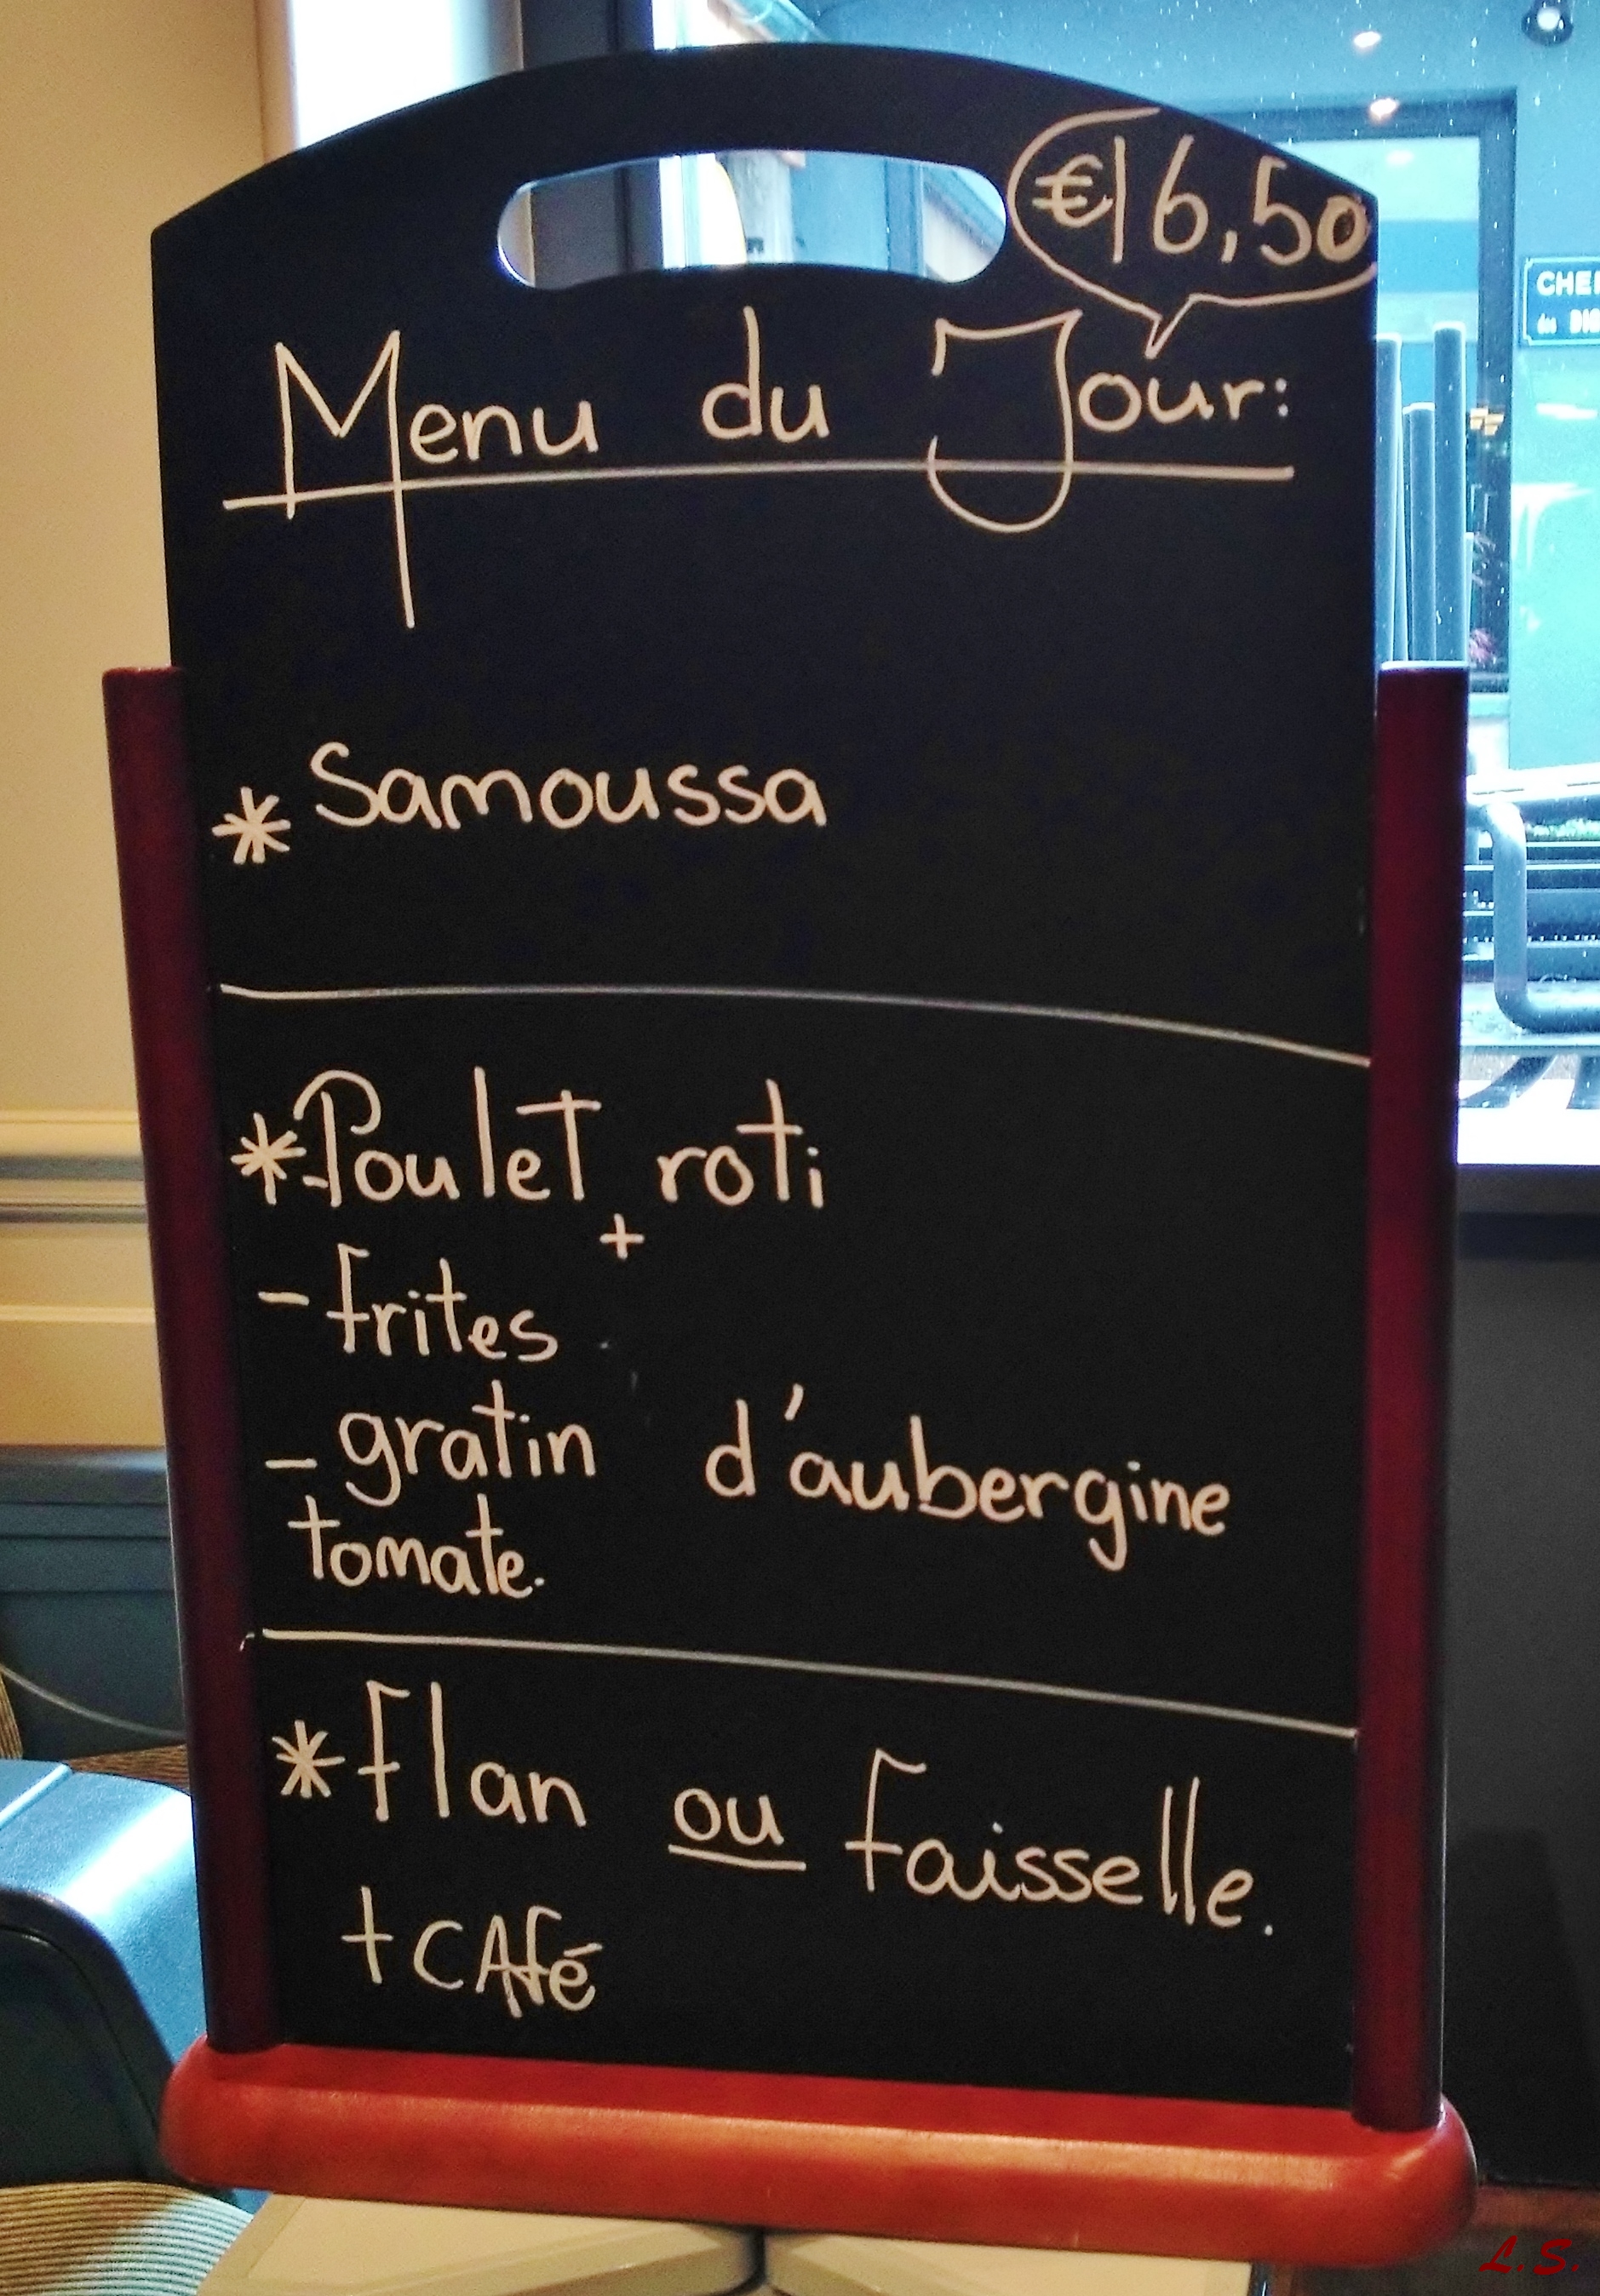 €16,50
Menu du Jour:
* Samoussa
* Poulet roti
+
- frites
- gratin d'aubergine
tomate.
* Flan ou faisselle.
+ CAfé
L.S.